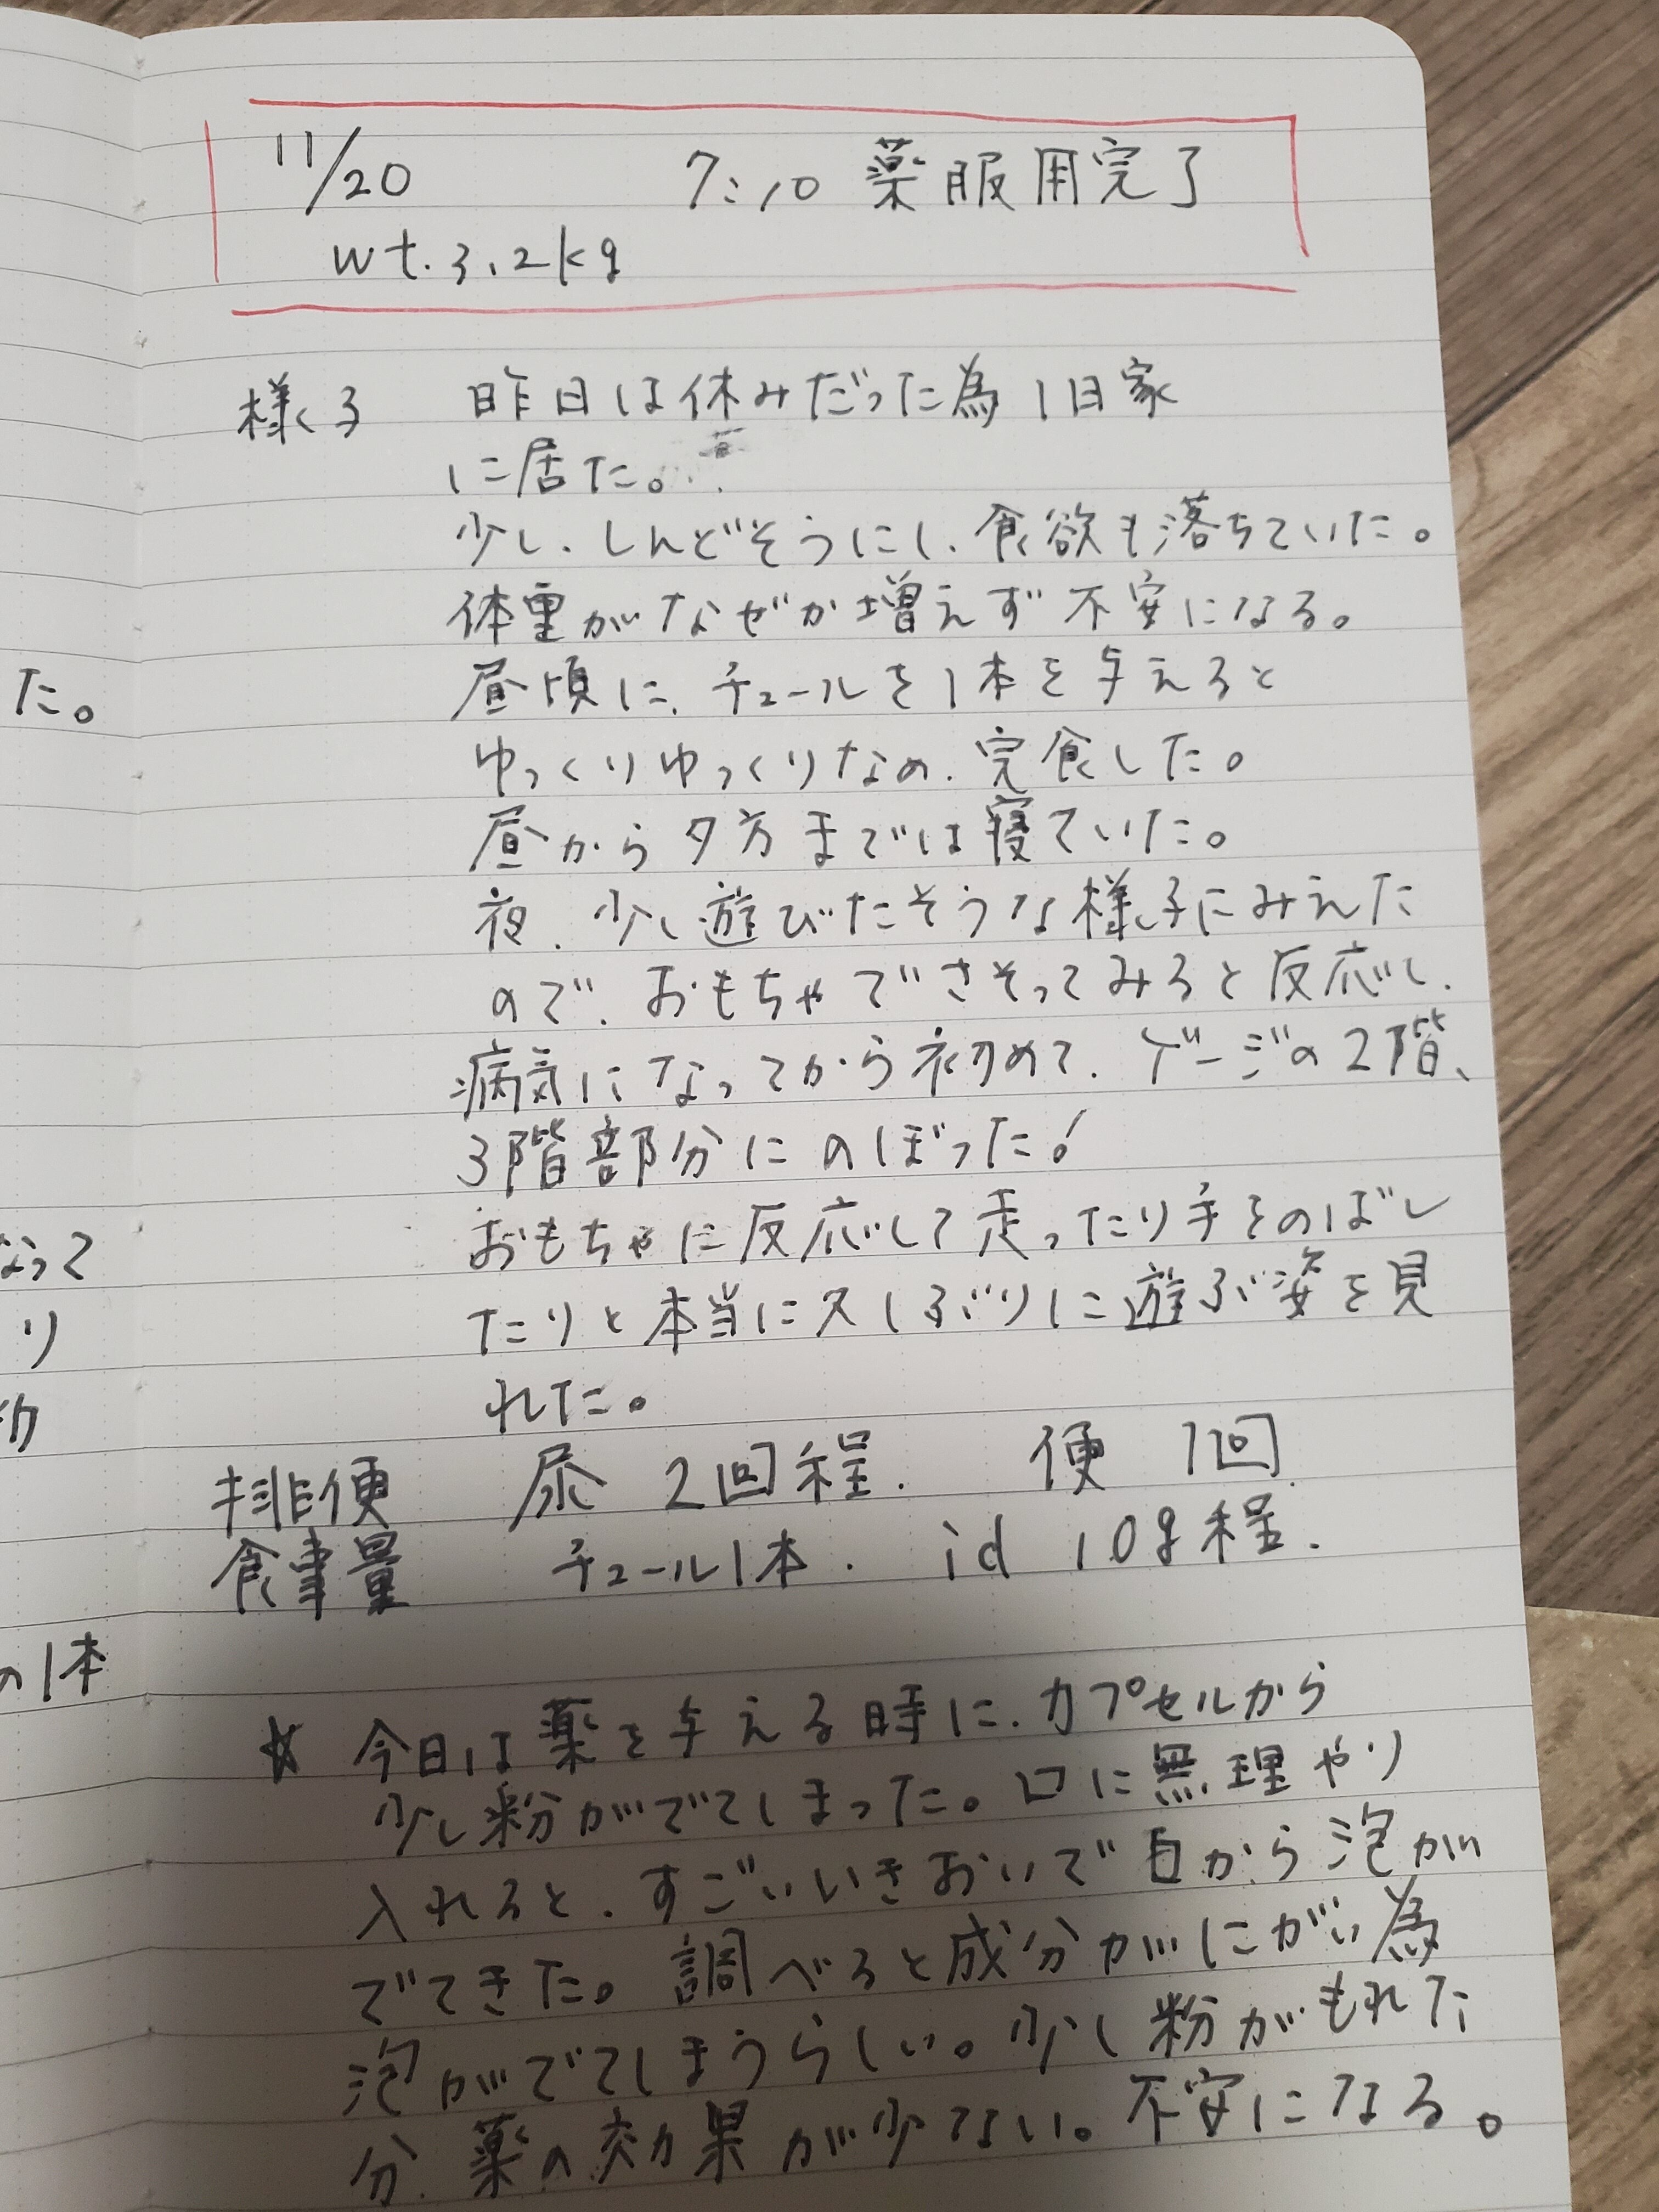 た。
なって
り
の1本
11/20 7:10 薬服用完了
wt. 3.2kg
様子 昨日は休みだった為1日家
に居た。
少し、しんどそうにし、食欲も落ちていた。
体重がなぜか増えず不安になる。
昼頃に、チュールを1本を与えると
ゆっくりゆっくりなめ、完食した。
昼から夕方までは寝ていた。
夜、少し遊びたそうな様子にみえた
ので、おもちゃでさそってみると反応し、
病気になってから初めて、ゲージの2階、
3階部分にのぼった!
おもちゃに反応して走ったり手をのばし
たりと本当に久しぶりに遊ぶ姿を見
れた。
排便 尿 2回程. 便 1回.
食事量 チュール1本. id 10g程.
☆ 今日は薬を与える時に、カプセルから
少し粉がでてしまった。口に無理やり
入れると、すごいいきおいで口から泡が
でてきた。調べると成分がにがい為
泡がでてしまうらしい。少し粉がもれた
分、薬の効果が少ない。不安になる。